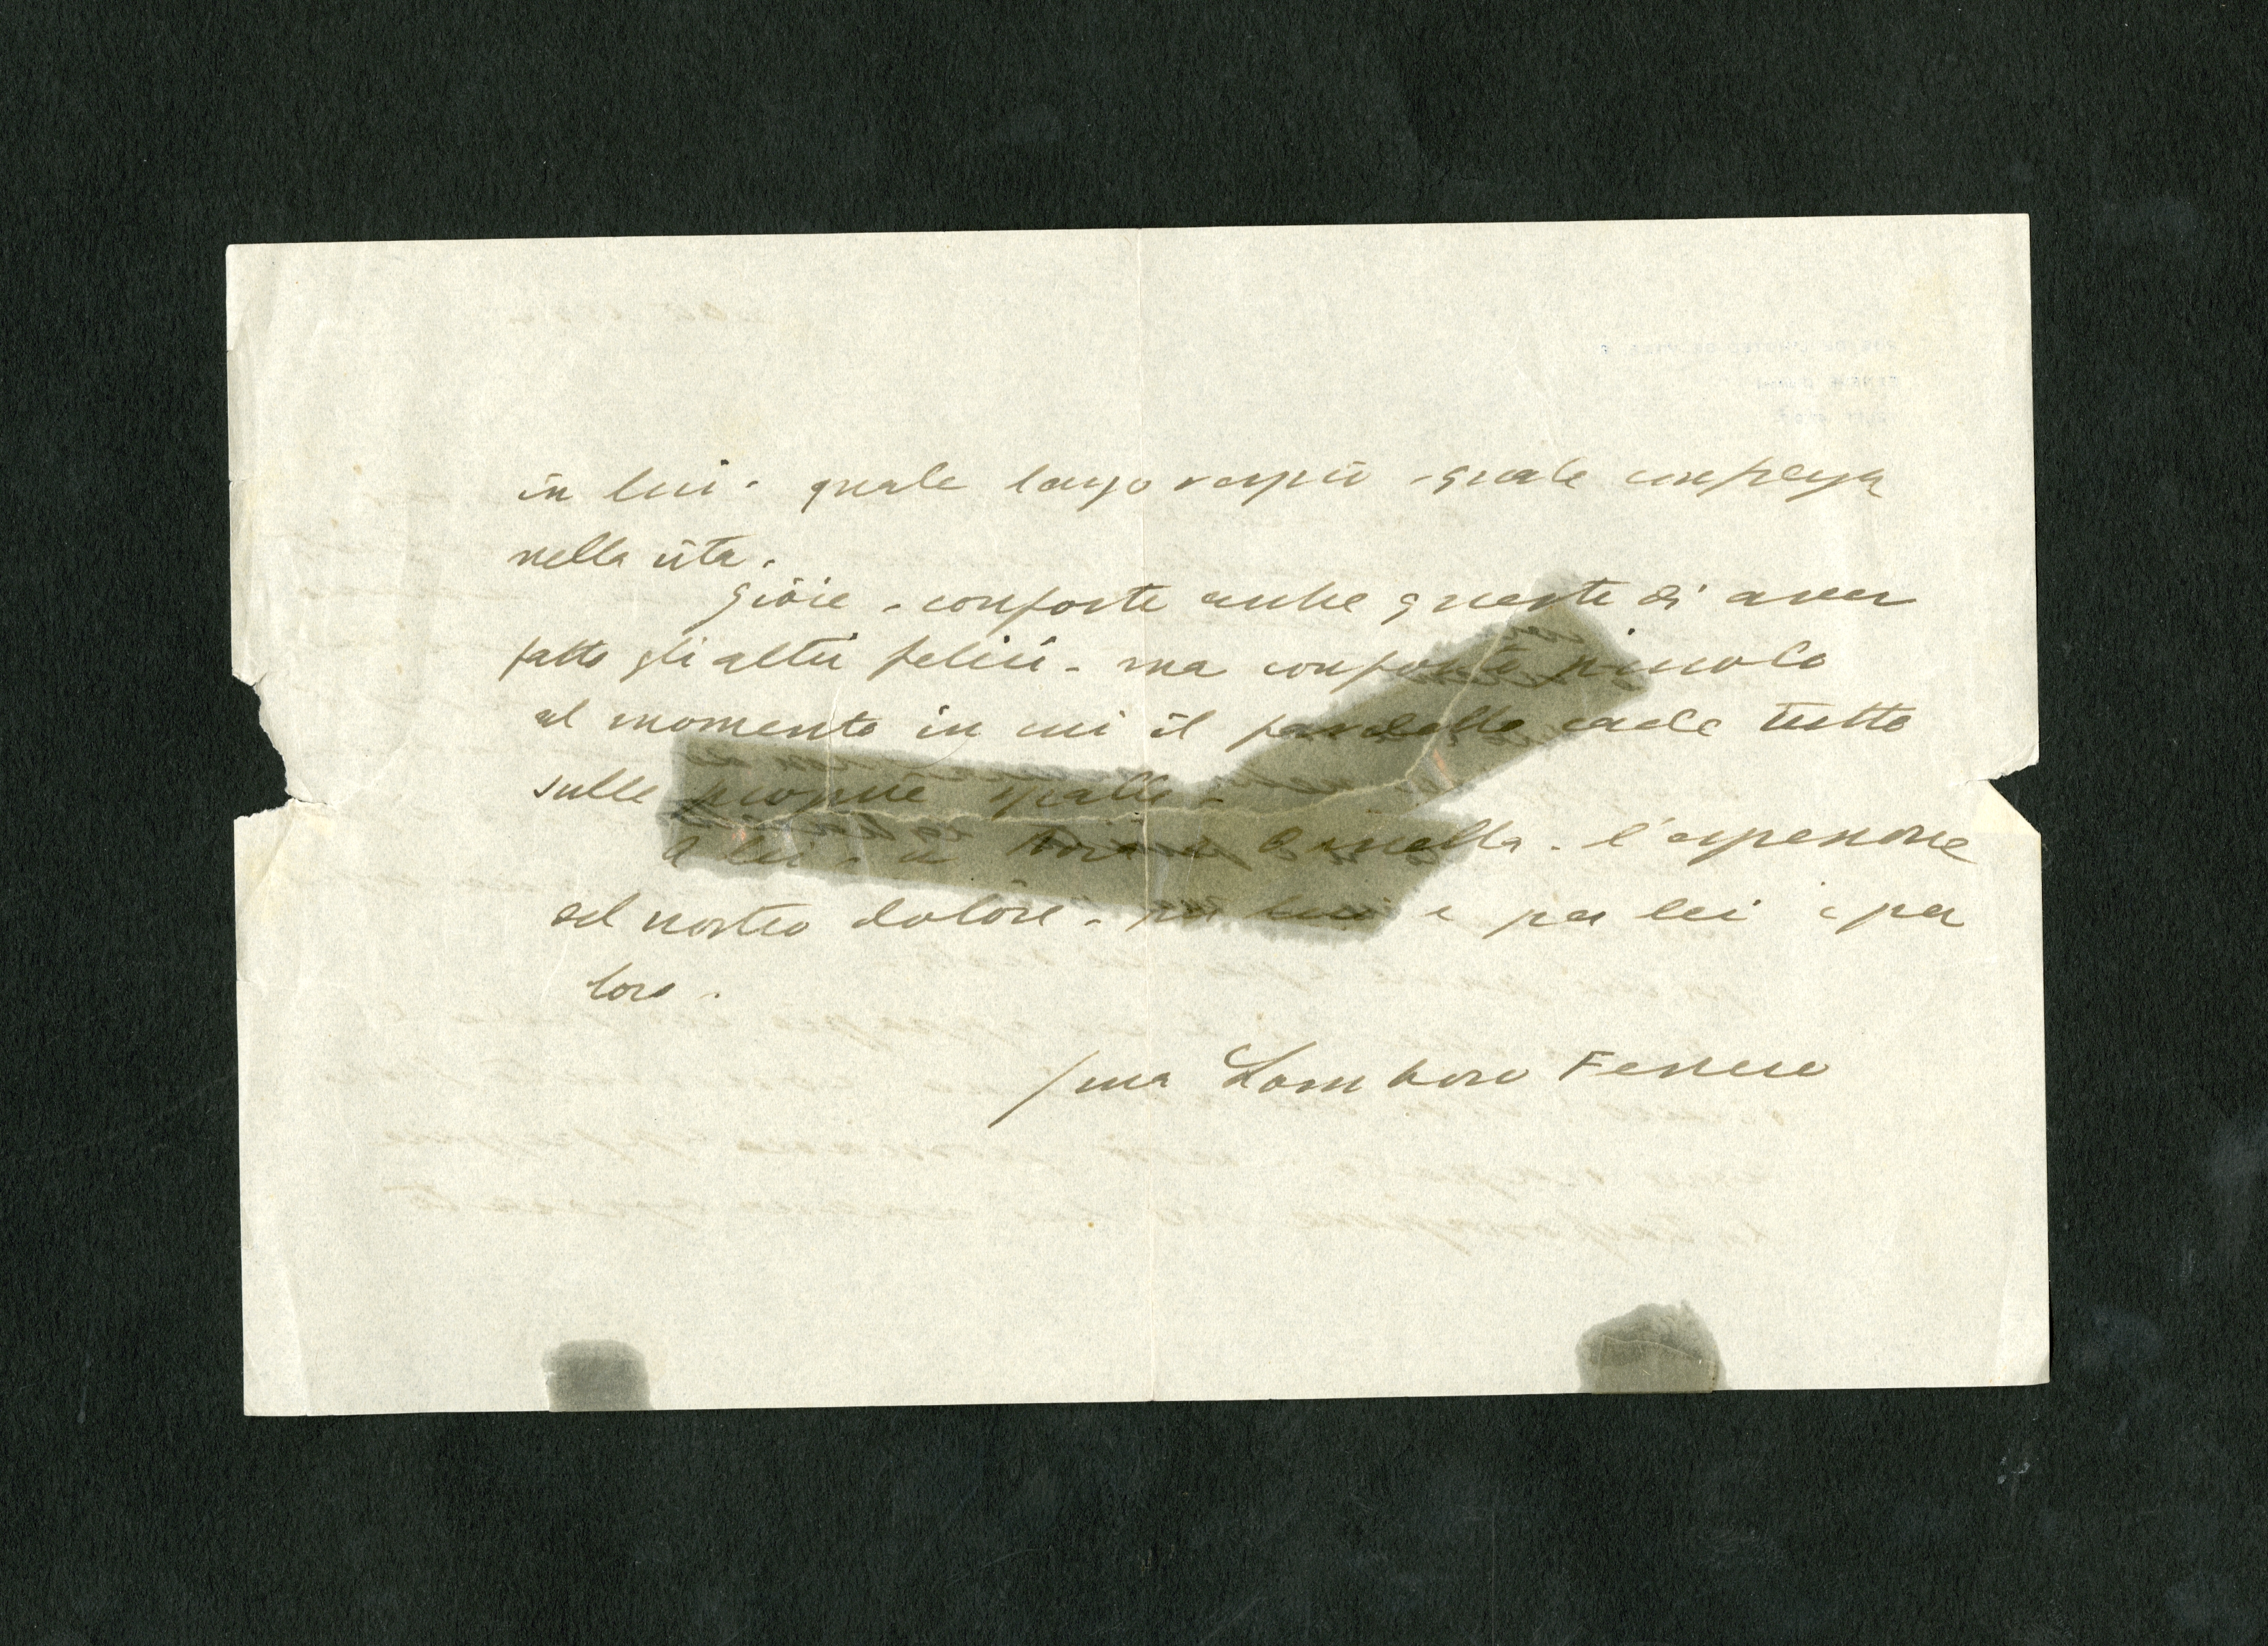 in lui. quale largo respiro - quale
nella vita.
Gioie - conforte anche queste di aver
fatto gli altri felici - ma conforto piccolo
al momento in cui il fardello cade tutto
sulle proprie spalle -
a lei - a sorella. l'espressione
del nostro dolore - per lui e per lei e per
loro.
Gina Lombroso Ferrero